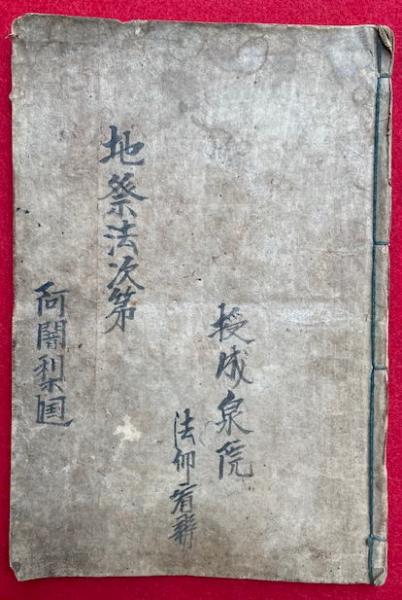 授成泉院
法印宥
地祭法次第
阿闍梨